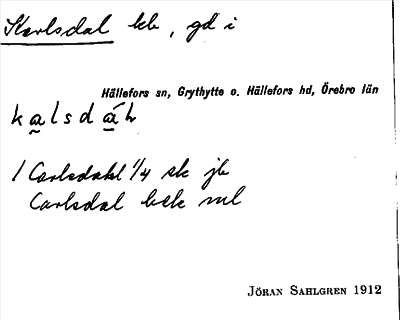 Karlsdal hb, gd i
Hällefors sn, Grythytte o. Hällefors hd, Örebro län
ka̰lsdá̰h
1 Carlsdahl 1/4 sk jb
Carlsdal bsk ml
JÖRAN SAHLGREN 1912